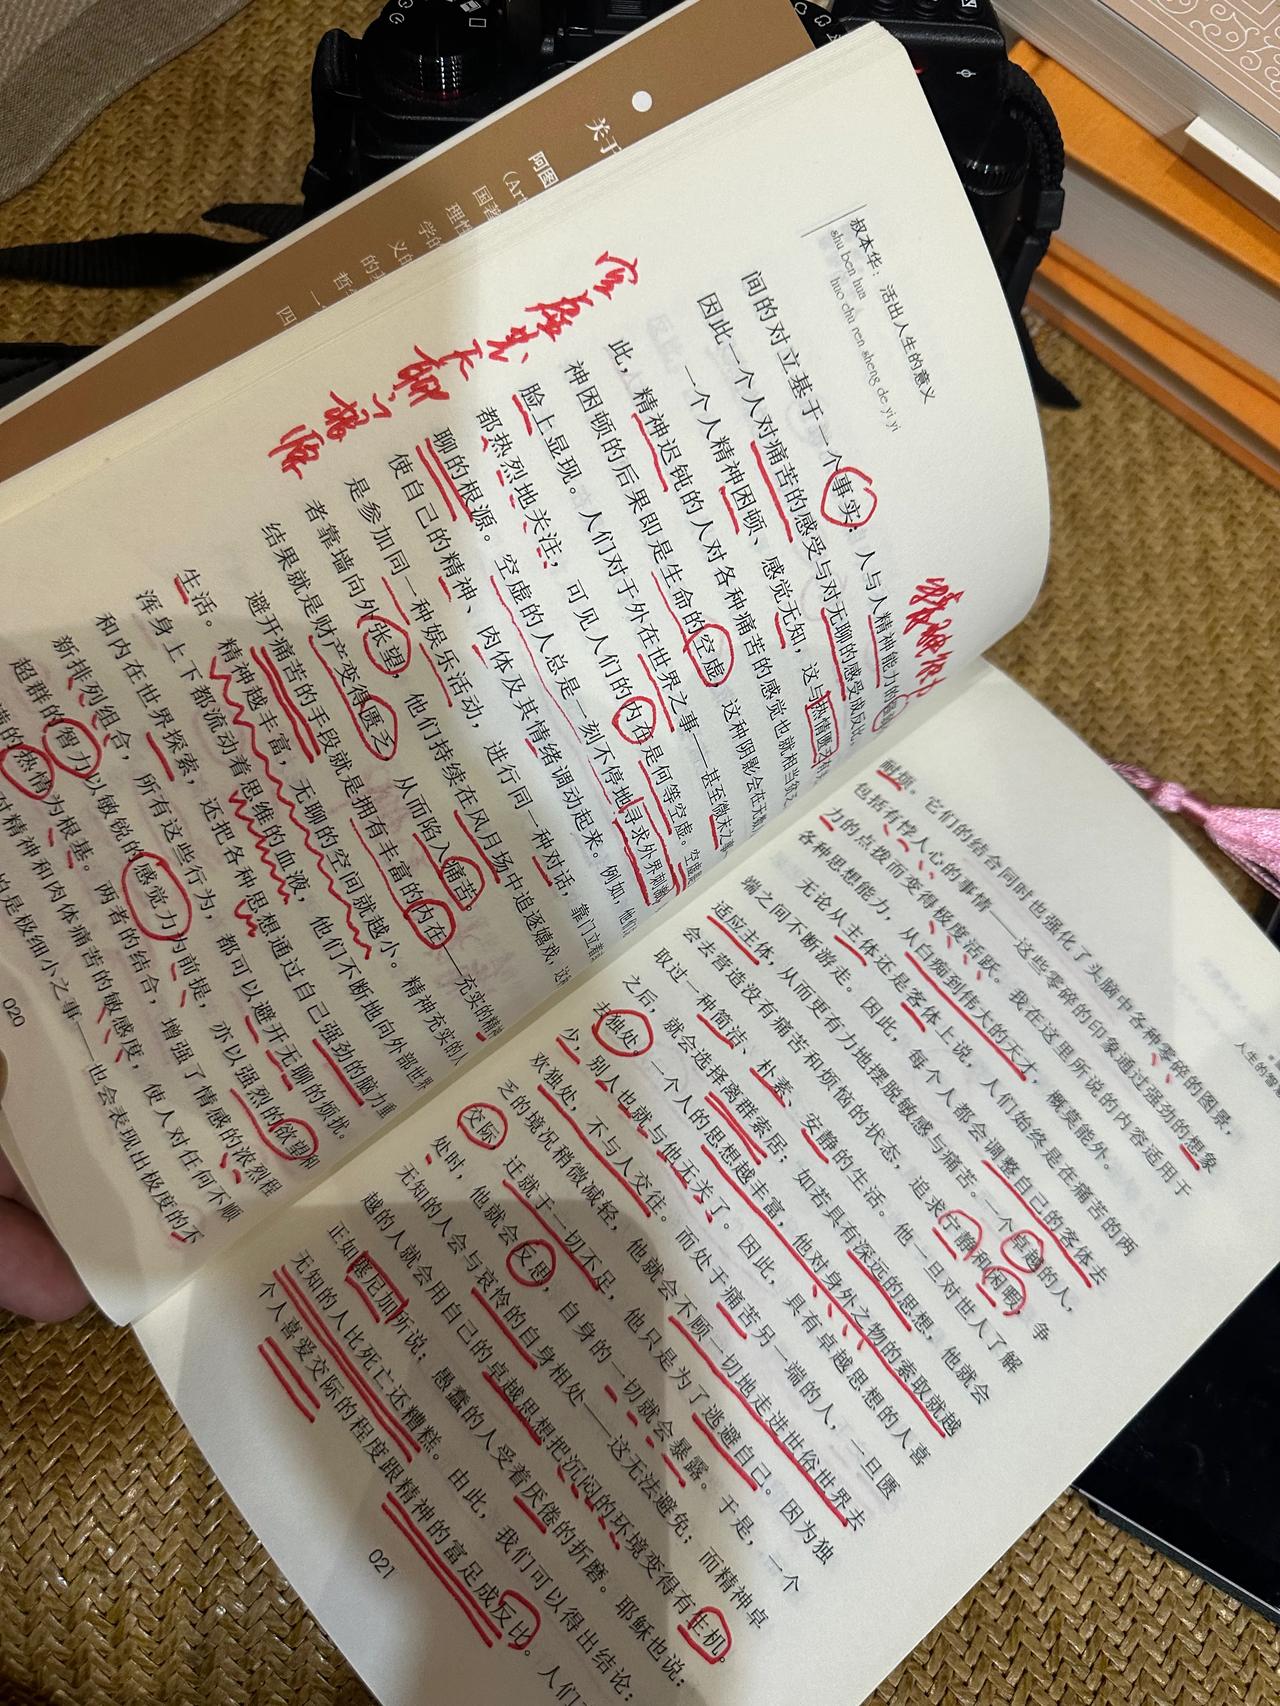 关于
阿图
(Art
国著
理性
学的
义的
的基
哲学
一
四
叔本华：活出人生的意义
shu ben hua
huo chu ren sheng de yi yi
间的对立基于一个事实：人与人精神能力的
因此一个人对痛苦的感受与对无聊的感受成反比，
一个人精神困顿、感觉无知，这与热情匮乏
此，精神迟钝的人对各种痛苦的感觉也就相当
神困顿的后果即是生命的空虚，这种阴影会在
脸上显现。人们对于外在世界之事——甚至微末之事
都热烈地关注，可见人们的内在是何等空虚。空虚是
聊的根源。空虚的人总是一刻不停地寻求外界刺激，
使自己的精神、肉体及其情绪调动起来。例如，他们
是参加同一种娱乐活动，进行同一种对话，靠门立着
者靠墙向外张望，他们持续在风月场中追逐嬉戏，
结果就是财产变得匮乏，从而陷入痛苦。
避开痛苦的手段就是拥有丰富的内在——充实的精神
生活。精神越丰富，无聊的空间就越小。精神充实的人
浑身上下都流动着思维的血液，他们不断地向外部世界
和内在世界探索，还把各种思想通过自己强劲的脑力重
新排列组合，所有这些行为，都可以避开无聊的烦扰。
超群的智力以敏锐的感觉力为前提，亦以强烈的欲望和
满的热情为根基。两者的结合，增强了情感的浓烈程
对精神和肉体痛苦的敏感度，使人对任何不顺
怕是极细小之事——也会表现出极度的不
020
空虚是
无聊的
根源
人生的智
耐烦。它们的结合同时也强化了头脑中各种零碎的图景，
包括有悖人心的事情——这些零碎的印象通过强劲的想象
力的点拨而变得极度活跃。我在这里所说的内容适用于
各种思想能力，从白痴到伟大的天才，概莫能外。
无论从主体还是客体上说，人们始终是在痛苦的两
端之间不断游走。因此，每个人都会调整自己的客体去
适应主体，从而更有力地摆脱敏感与痛苦。一个卓越的人，
会去营造没有痛苦和烦恼的状态，追求宁静和闲暇，争
取过一种简洁、朴素、安静的生活。他一旦对世人了解
之后，就会选择离群索居；如若具有深远的思想，他就会
去独处。一个人的思想越丰富，他对身外之物的索取就越
少，别人也就与他无关了。因此，具有卓越思想的人喜
欢独处，不与人交往。而处于痛苦另一端的人，一旦匮
乏的境况稍微减轻，他就会不顾一切地走进世俗世界去
交际，迁就于一切不足，他只是为了逃避自己。因为独
处时，他就会反思，自身的一切就会暴露。于是，一个
无知的人会与哀怜的自身相处——这无法避免；而精神卓
越的人就会用自己的卓越思想把沉闷的环境变得有生机。
正如塞尼加所说：愚蠢的人受着厌倦的折磨。耶稣也说：
无知的人比死亡还糟糕。由此，我们可以得出结论：
个人喜爱交际的程度跟精神的富足成反比。人们
021